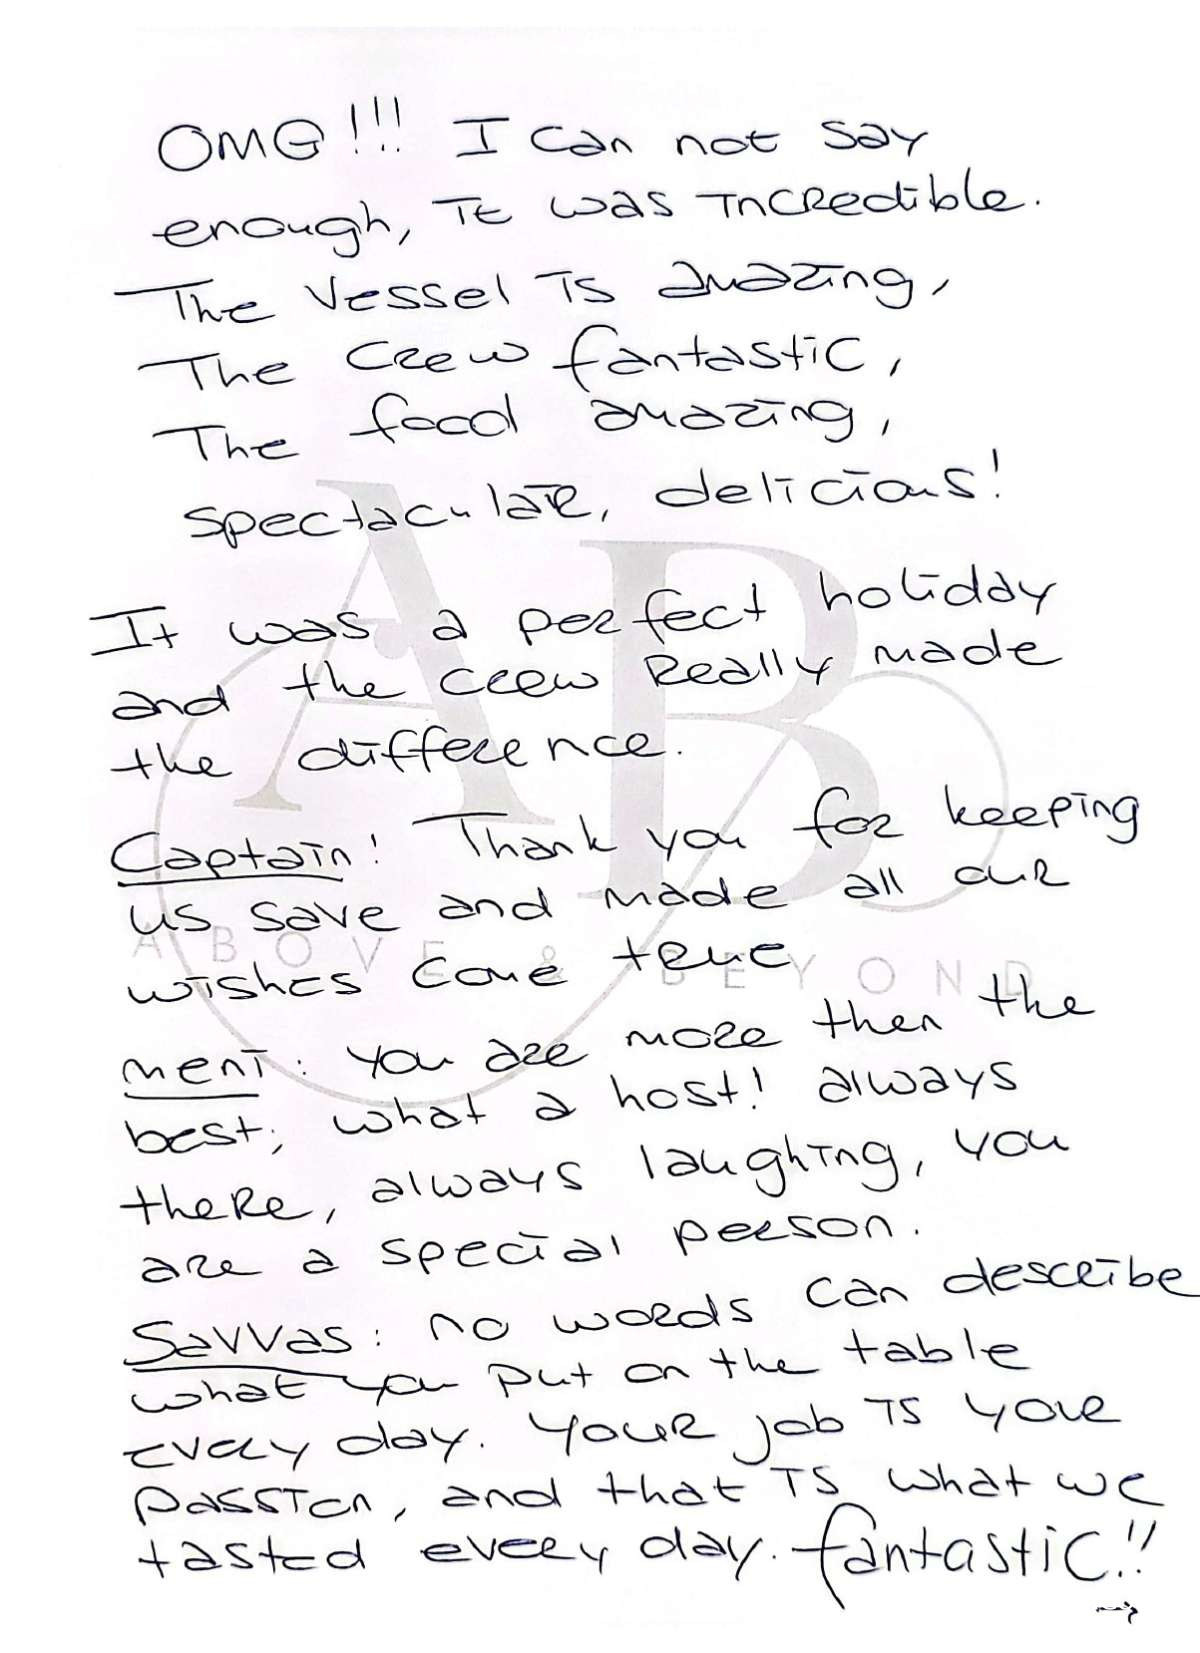 OMG!!! I can not say
enough, it was incredible.
The vessel is amazing,
The crew fantastic,
The food amazing,
spectaculair, delicious!
It was a perfect holiday
and the crew really made
the difference.
Captain! Thank you for keeping
us save and made all our
wishes come true
ABOVE & BEYOND
Meni: you are more then the
best, what a host! always
there, always laughing, you
are a special person.
Savvas: no words can describe
what you put on the table
every day. Your job is your
passion, and that is what we
tasted every day. fantastic!!
AB